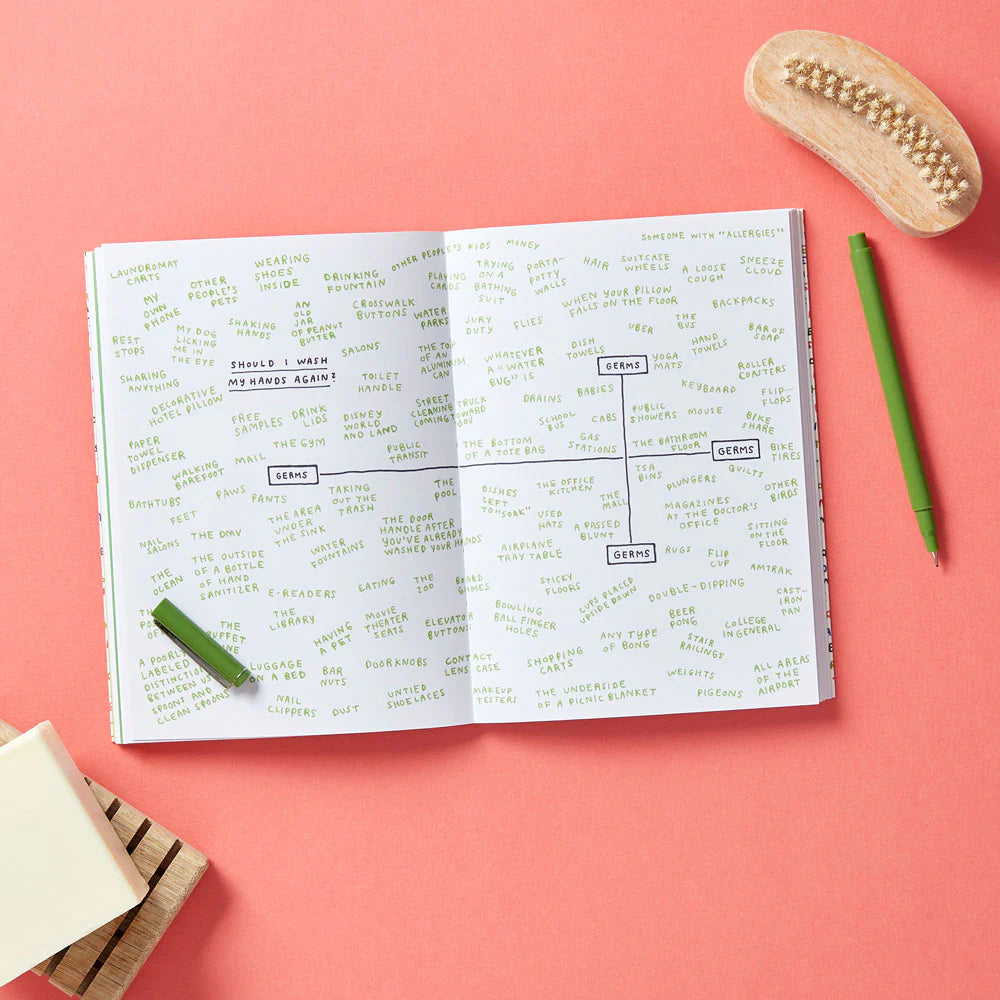 LAUNDROMAT
CARTS
WEARING
SHOES
INSIDE
OTHER PEOPLE'S KIDS
MONEY
SOMEONE WITH "ALLERGIES"
MY
OWN
PHONE
OTHER
PEOPLE'S
PETS
DRINKING
FOUNTAIN
PLAYING
CARDS
TRYING
ON A
BATHING
SUIT
PORTA-
POTTY
WALLS
HAIR
SUITCASE
WHEELS
A LOOSE
COUGH
SNEEZE
CLOUD
REST
STOPS
MY DOG
LICKING
ME IN
THE EYE
SHAKING
HANDS
AN
OLD
JAR
OF PEANUT
BUTTER
CROSSWALK
BUTTONS
WATER
PARKS
JURY
DUTY
FLIES
WHEN YOUR PILLOW
FALLS ON THE FLOOR
BACKPACKS
UBER
THE
BUS
HAND
TOWELS
BAR OF
SOAP
SHOULD I WASH
MY HANDS AGAIN?
SALONS
THE TOP
OF AN
ALUMINUM
CAN
WHATEVER
A "WATER
BUG" IS
DISH
TOWELS
GERMS
YOGA
MATS
ROLLER
COASTERS
SHARING
ANYTHING
DECORATIVE
HOTEL PILLOW
TOILET
HANDLE
DRAINS
BABIES
KEYBOARD
FLIP-
FLOPS
FREE
SAMPLES
DRINK
LIDS
DISNEY
WORLD
AND LAND
STREET
CLEANING TRUCK
COMING TOWARD
YOU
SCHOOL
BUS
CABS
PUBLIC
SHOWERS
MOUSE
BIKE
SHARE
PAPER
TOWEL
DISPENSER
WALKING
BAREFOOT
MAIL
THE GYM
PUBLIC
TRANSIT
THE BOTTOM
OF A TOTE BAG
GAS
STATIONS
THE BATHROOM
FLOOR
GERMS
BIKE
TIRES
BATHTUBS
PAWS
PANTS
GERMS
TAKING
OUT THE
TRASH
THE
POOL
DISHES
LEFT
TO "SOAK"
THE OFFICE
KITCHEN
THE
MALL
TSA
BINS
PLUNGERS
QUILTS
OTHER
BIRDS
FEET
THE AREA
UNDER
THE SINK
USED
HATS
A PASSED
BLUNT
MAGAZINES
AT THE DOCTOR'S
OFFICE
SITTING
ON THE
FLOOR
NAIL
SALONS
THE DMV
WATER
FOUNTAINS
THE DOOR
HANDLE AFTER
YOU'VE ALREADY
WASHED YOUR HANDS
AIRPLANE
TRAY TABLE
GERMS
RUGS
FLIP
CUP
AMTRAK
THE
OCEAN
THE OUTSIDE
OF A BOTTLE
OF HAND
SANITIZER
E-READERS
EATING
THE
ZOO
BOARD
GAMES
STICKY
FLOORS
CUPS PLACED
UPSIDE DOWN
DOUBLE-DIPPING
CAST-
IRON
PAN
THE
THE
BUFFET
THE
LIBRARY
HAVING
A PET
MOVIE
THEATER
SEATS
ELEVATOR
BUTTONS
BOWLING
BALL FINGER
HOLES
ANY TYPE
OF BONG
BEER
PONG
STAIR
RAILINGS
COLLEGE
IN GENERAL
A POORLY
LABELED
DISTINCTION
BETWEEN USED
SPOONS AND
CLEAN SPOONS
LUGGAGE
ON A BED
BAR
NUTS
DOORKNOBS
CONTACT
LENS CASE
SHOPPING
CARTS
WEIGHTS
ALL AREAS
OF THE
AIRPORT
NAIL
CLIPPERS
DUST
UNTIED
SHOELACES
MAKEUP
TESTERS
THE UNDERSIDE
OF A PICNIC BLANKET
PIGEONS